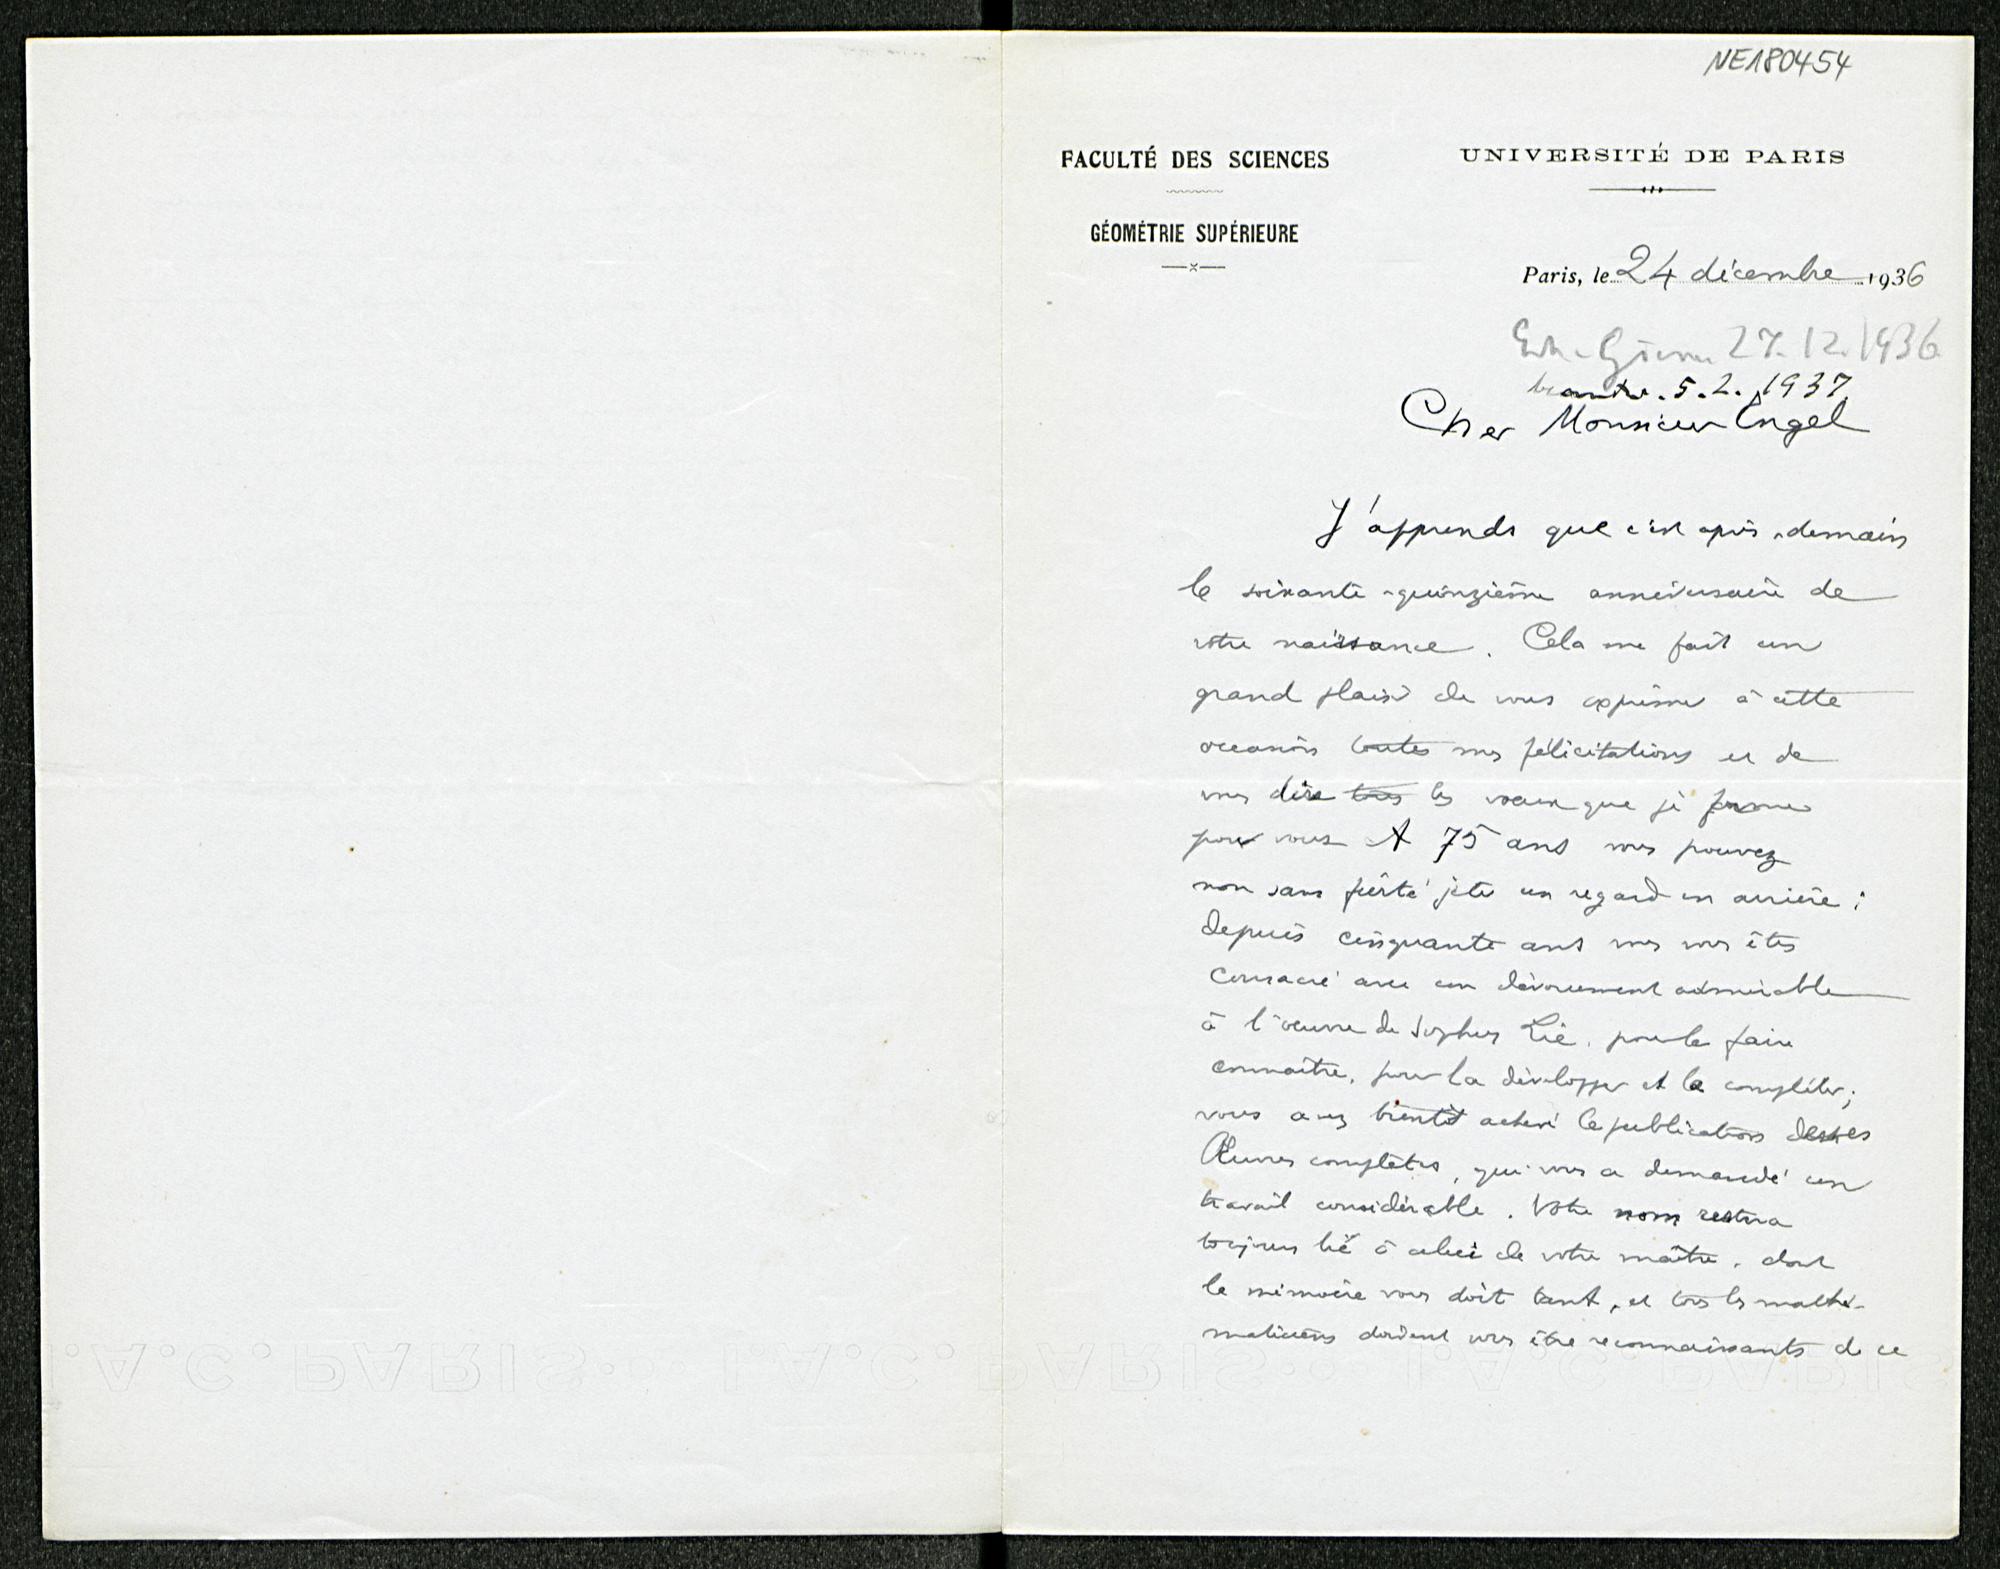 NE180454
FACULTÉ DES SCIENCES
UNIVERSITÉ DE PARIS
GÉOMÉTRIE SUPÉRIEURE
Paris, le 24 décembre 1936
27.12.1936
5.2.1937
Cher Monsieur Engel
J'apprends que c'est après-demain
le soixante-quinzième anniversaire de
votre naissance. Cela me fait un
grand plaisir de vous exprimer à cette
occasion toutes mes félicitations et de
vous dire tous les vœux que je forme
pour vous. A 75 ans vous pouvez
non sans fierté jeter un regard en arrière :
depuis cinquante ans vous vous êtes
consacré avec un dévouement admirable
à l'œuvre de Sophus Lie, pour la faire
connaître, pour la développer et la compléter;
vous avez bientôt achevé la publication de ses
Œuvres complètes, qui vous a demandé un
travail considérable. Votre nom restera
toujours lié à celui de votre maître, dont
la mémoire vous doit tant, et tous les mathé-
maticiens doivent vous être reconnaissants de ce
I.A.C. PARIS · I.A.C. PARIS · I.A.C. PARIS